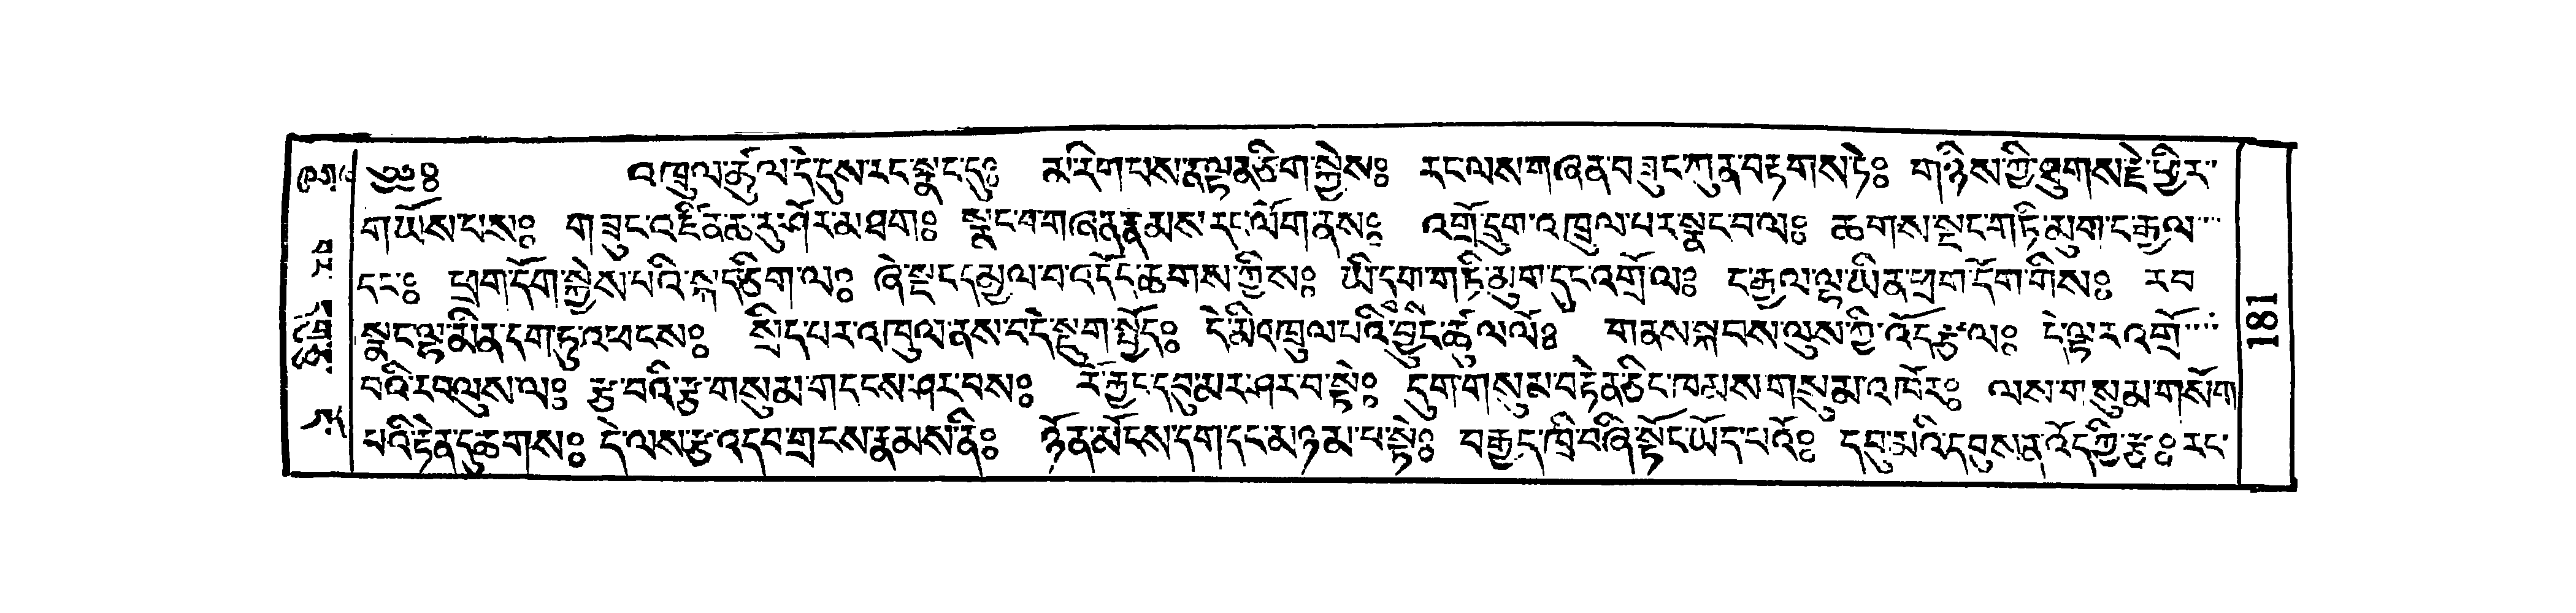 ༄༅༔ འཁྲུལ་རྩོལ་དེ་དུས་རང་སྣང་དུ༔ མ་རིག་པས་རྣ་ལྟན་ཅིག་སྐྱེས༔ རང་ལས་གཞན་བཟུང་ཀུན་བརྟགས་ཏེ༔ གཉིས་ཀྱི་ཐུགས་རྗེ་ཕྱིར་
གཡོས་པས༔ གཟུང་འཛིན་ཆ་རུ་ཤོར་མ་ཐག༔ སྣང་བ་གཞན་རྣམས་རང་ལོག་ནས༔ འགྲོ་དྲུག་འཁྲུལ་པར་སྣང་བ་ལ༔ ཆགས་སྡང་གཏི་མུག་ང་རྒྱལ་
དང་༔ ཕྲག་དོག་སྐྱེས་པའི་སྐད་ཅིག་ལ༔ ཞེ་སྡང་དམྱལ་བ་འདོད་ཆགས་ཀྱིས༔ ཡི་དྭག་གཏི་མུག་དུད་འགྲོ་ལ༔ ང་རྒྱལ་ལྷ་ཡིན་ཕྲག་དོག་གིས༔ རབ་
སྣང་ལྷ་མིན་དག་ཏུ་འཕངས༔ སྲིད་པར་འཁྲུལ་ནས་བདེ་སྡུག་སྤྱོད༔ དེ་མི་འཁྲུལ་པའི་བྱུང་ཚུལ་ལོ༔ གནས་སྐབས་ལུས་ཀྱི་འོད་རྩ་ལ༔ དེ་ལྟར་འགྲོ་
བའི་རབ་ལུས་ལ༔ རྩ་བའི་རྩ་གསུམ་གདངས་ཤར་བས༔ རོ་རྐྱང་དབུ་མར་ཤར་བ་སྟེ༔ དུག་གསུམ་བརྟེན་ཅིང་ཁམས་གསུམ་འཁོར༔ ལས་གསུམ་གསོག་
པའི་རྟེན་དུ་ཆགས༔ དེ་ལས་རྩ་འདབ་གྲངས་རྣམས་ནི༔ ཉོན་མོངས་དག་དང་མཉམ་པ་སྟེ༔ བརྒྱད་ཁྲི་བཞི་སྟོང་ཡོད་པའོ༔ དབུ་མའི་དབུས་ན་འོད་ཀྱི་རྩ༔ རང་
181